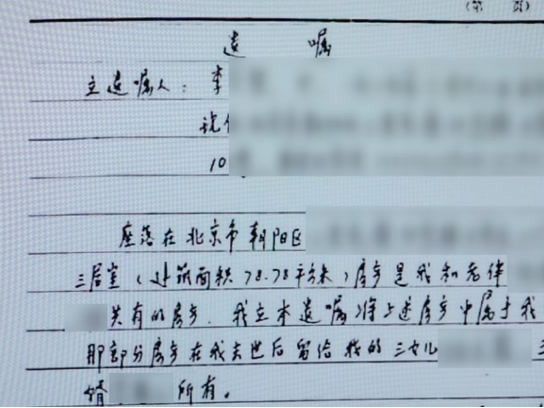 (第 页)
遗 嘱
立遗嘱人：李
现住
10
座落在北京市朝阳区
三居室（建筑面积78.78平方米）房产是我和老伴
共有的房产．我立本遗嘱，将上述房产中属于我
那部分房产在我去世后留给我的三女儿 三
婿 所有。